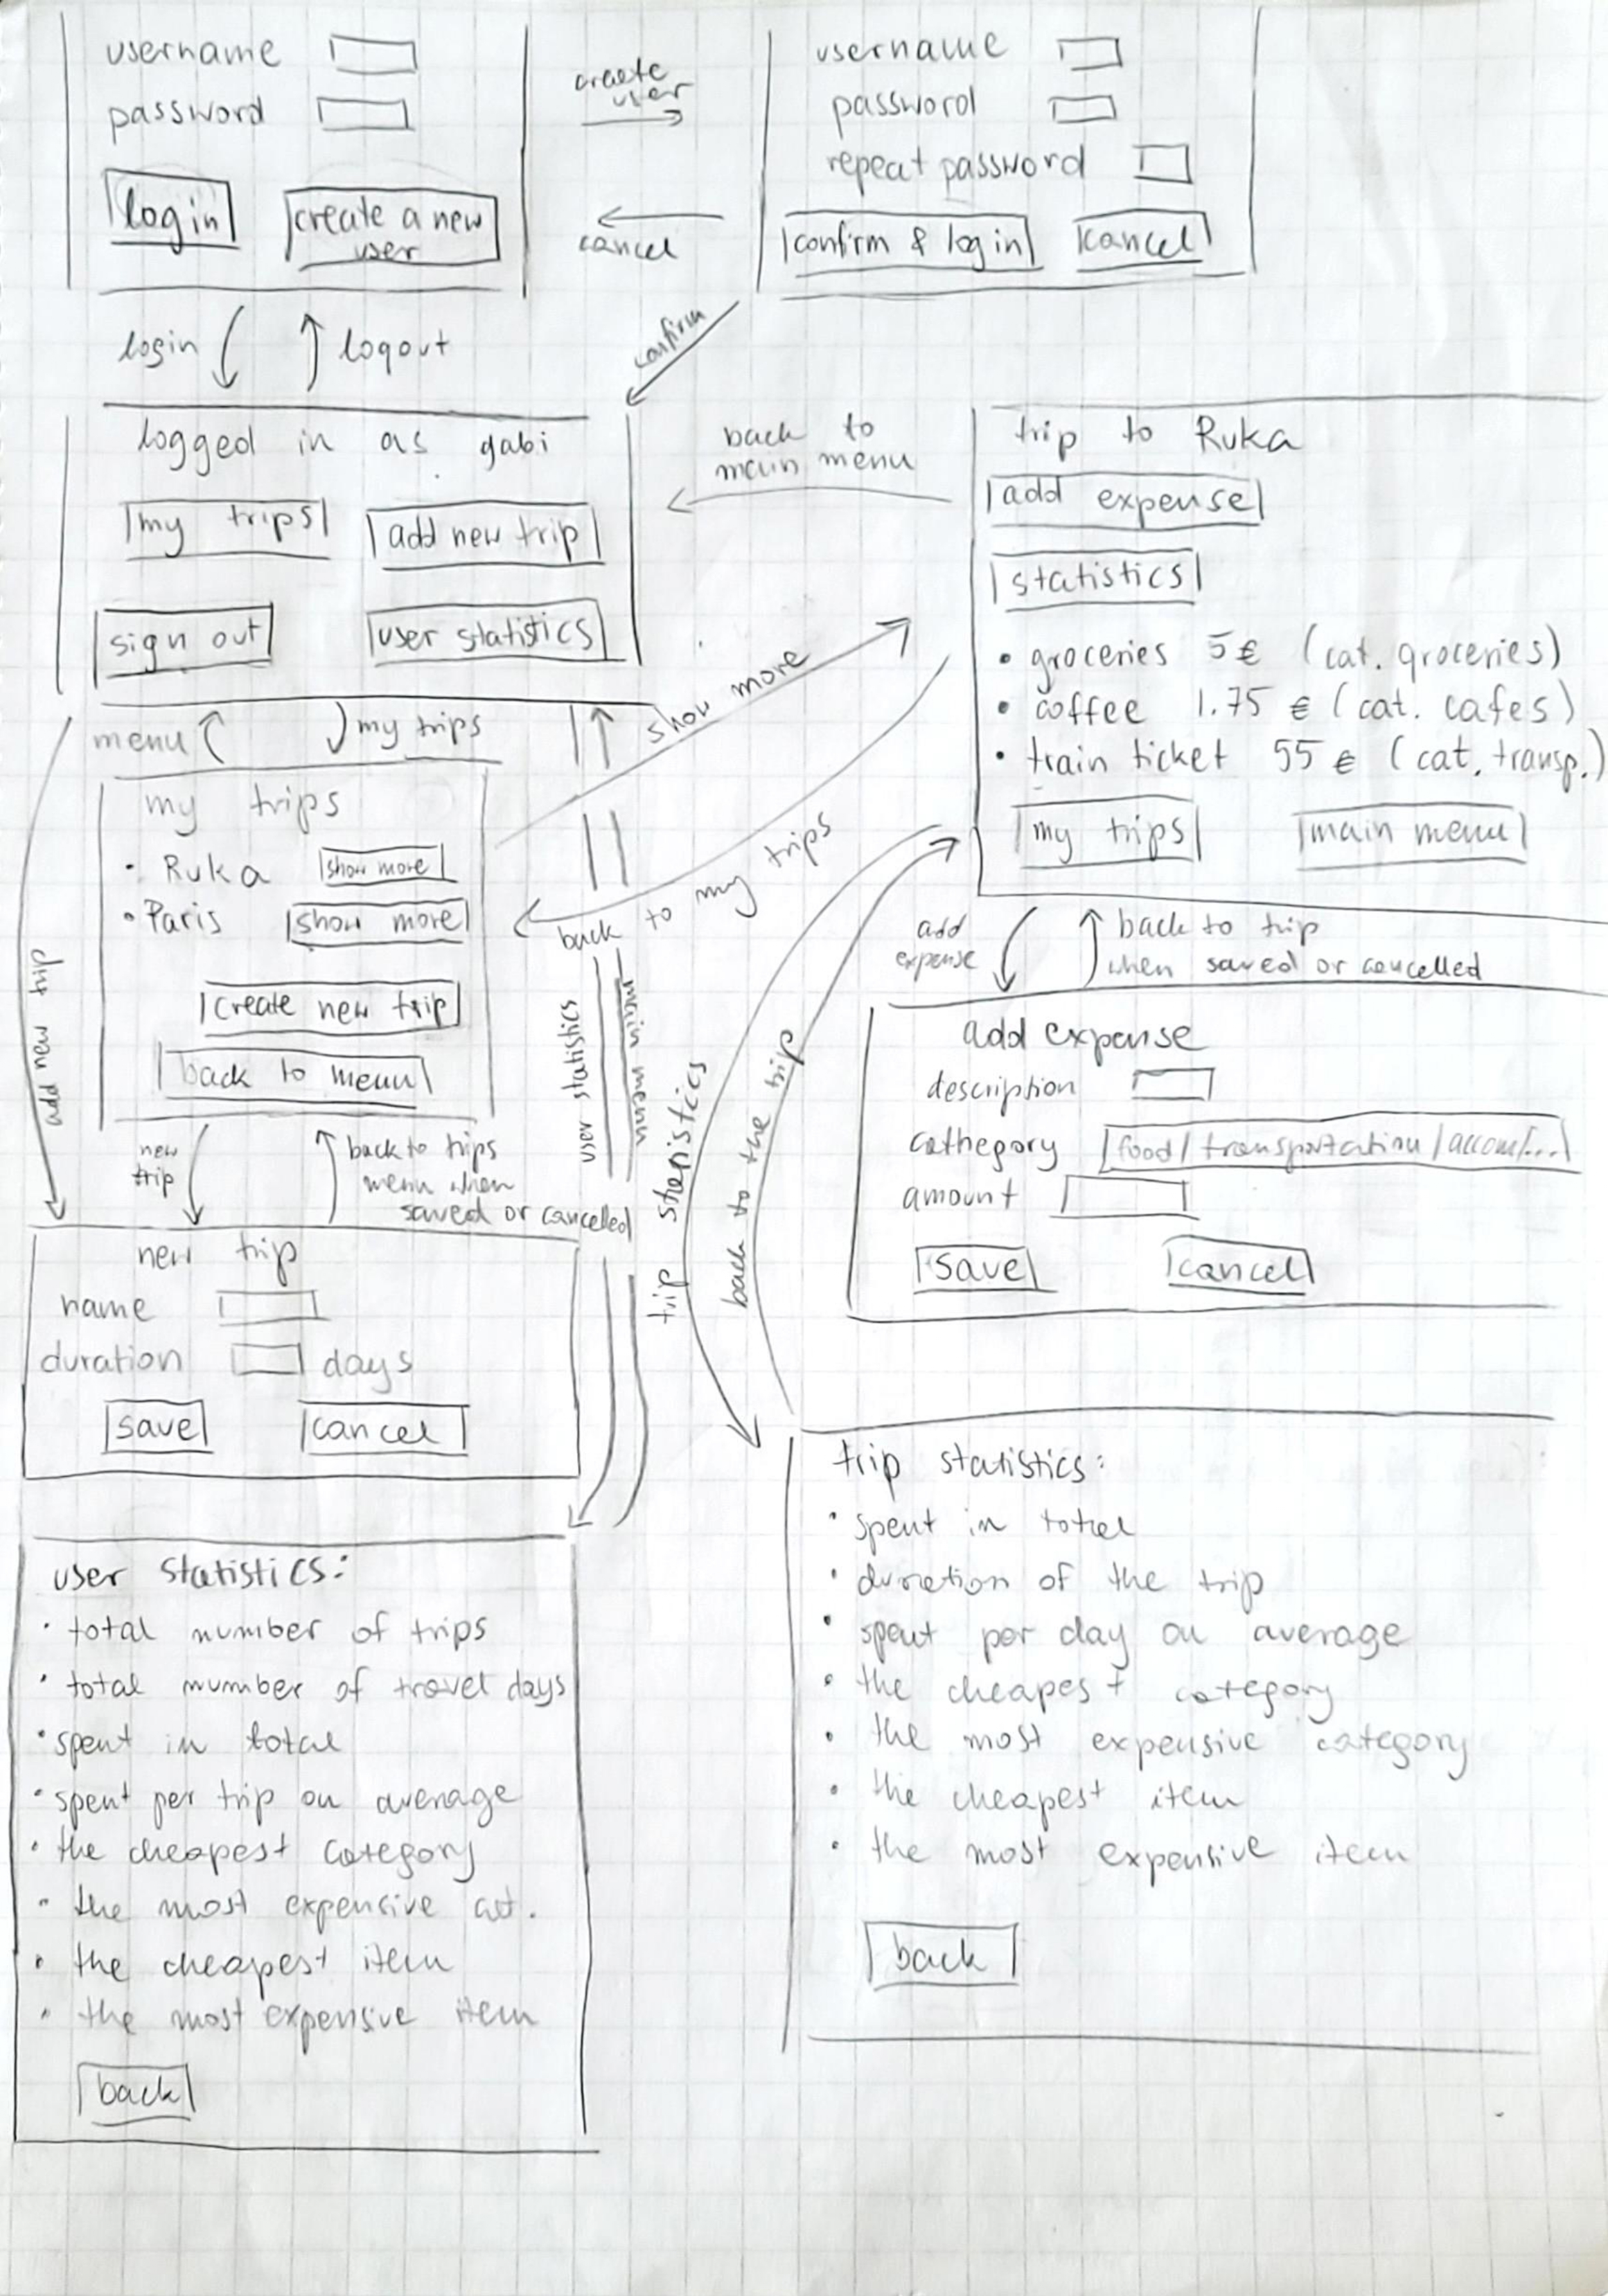 username
password
log in
create a new
user
create
user
cancel
username
password
repeat password
confirm & log in
cancel
login
logout
confirm
logged in as gabi
my trips
add new trip
sign out
user statistics
back to
main menu
trip to Ruka
add expense
statistics
• groceries 5 € (cat. groceries)
• coffee 1.75 € (cat. cafes)
• train ticket 55 € (cat. transp.)
my trips
main menu
menu
my trips
show more
back to my trips
add new trip
my trips
• Ruka show more
• Paris show more
create new trip
back to menu
user statistics
main menu
trip statistics
back to the trip
add
expense
back to trip
when saved or cancelled
add expense
description
cathegory food / transportation / accom/...
amount
save
cancel
new
trip
back to trips
menu when
saved or cancelled
new trip
name
duration days
save
cancel
user statistics:
• total number of trips
• total number of travel days
• spent in total
• spent per trip on average
• the cheapest category
• the most expensive cat.
• the cheapest item
• the most expensive item
back
trip statistics:
• spent in total
• duration of the trip
• spent per day on average
• the cheapest category
• the most expensive category
• the cheapest item
• the most expensive item
back